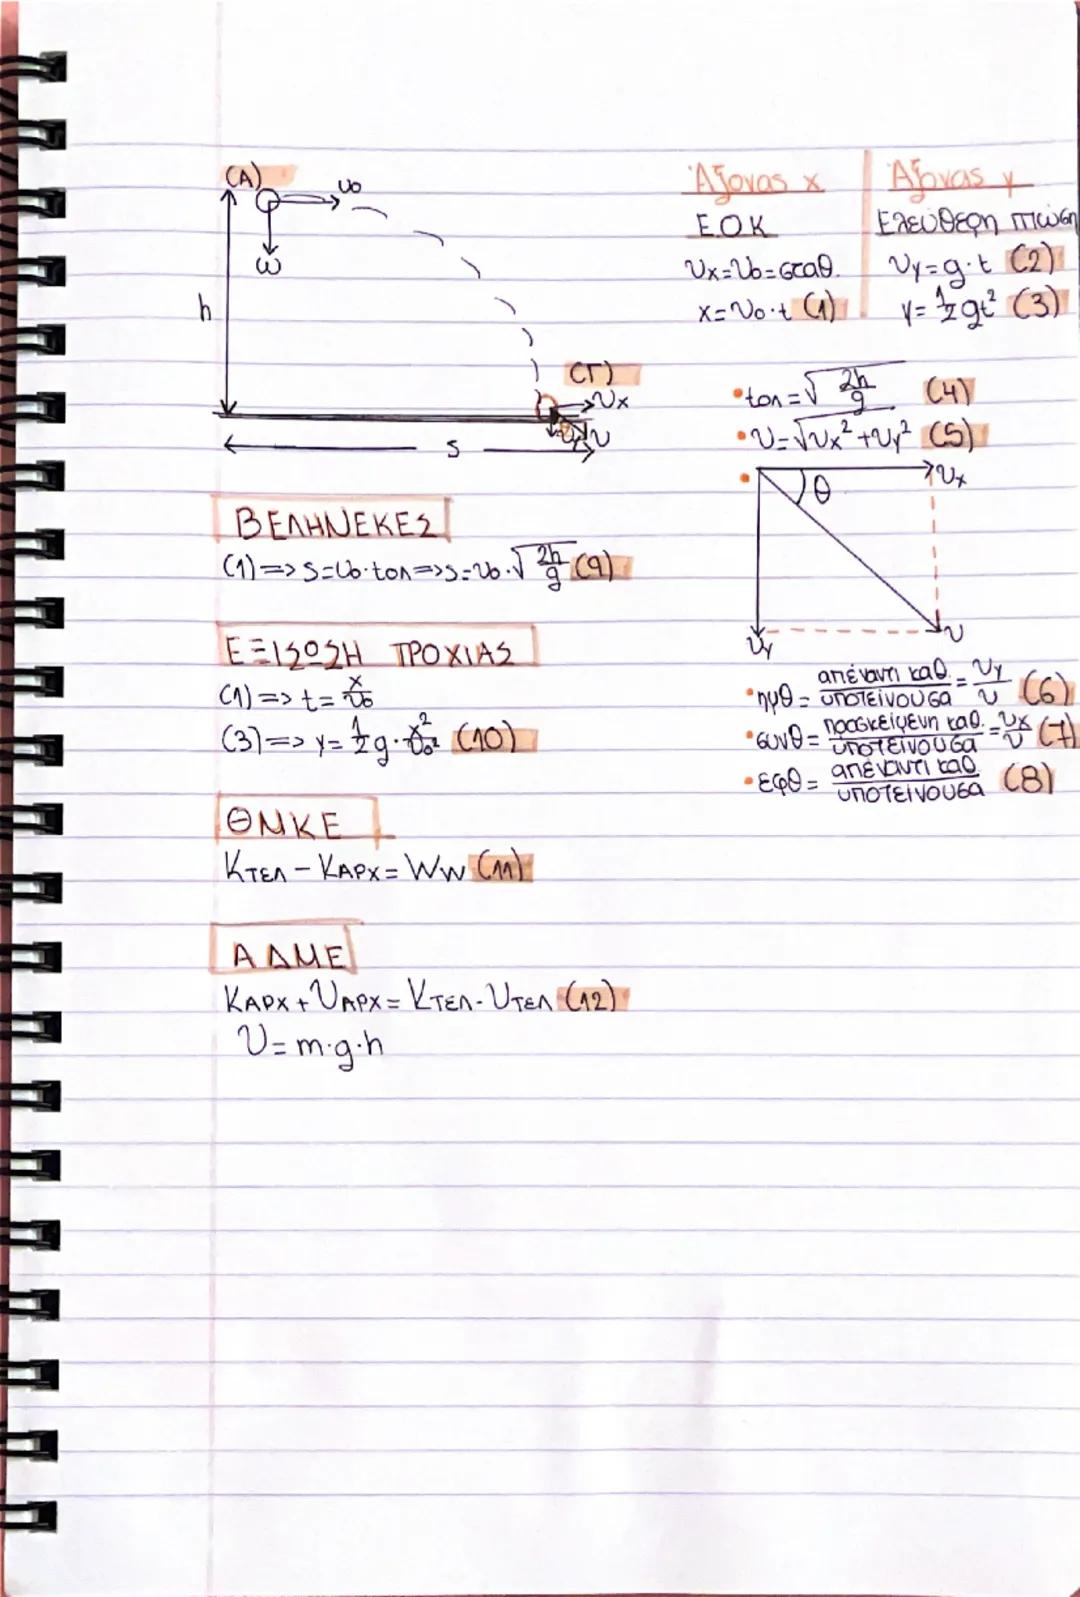 (Α)
υο
w
h
(Γ)
υx
υy
υ
S
Άξονας x
Ε.Ο.Κ
υx=υο=σταθ.
x=υο·t (1)
Άξονας y
Ελεύθερη πτώση
υy=g·t (2)
y=½gt² (3)
•tολ=√2h/g (4)
•υ=√υx²+υy² (5)
υx
θ
υy
υ
•ημθ= απέναντι καθ./υποτείνουσα = υy/υ (6)
•συνθ= προσκείμενη καθ./υποτείνουσα = υx/υ (7)
•εφθ= απέναντι καθ/υποτείνουσα (8)
ΒΕΛΗΝΕΚΕΣ
(1)=>S=υο·tολ=>S=υο·√2h/g (9)
ΕΞΙΣΩΣΗ ΤΡΟΧΙΑΣ
(1)=> t= x/υο
(3)=> y= ½g·x²/υο² (10)
ΘΜΚΕ
ΚΤΕΛ - ΚΑΡΧ= Ww (11)
ΑΔΜΕ
ΚΑΡΧ + UΑΡΧ= ΚΤΕΛ - UΤΕΛ (12)
U=m·g·h